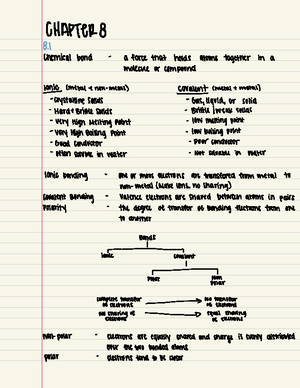 CHAPTER 8
8.1
Chemical bond - a force that holds atoms together in a
molecule or compound
Ionic (metal + non-metal) Covalent (metal + metal)
- Crystalline Solids - Gas, liquid, or solid
- Hard + Brittle Solids - Brittle / weak solids
- Very High Melting Point - Low melting point
- Very High Boiling Point - Low boiling point
- Good Conductor - Poor Conductor
- Often soluble in water - Not soluble in water
Ionic bonding - one or more electrons are transferred from metal to
non-metal (makes ions, no sharing)
Covalent Bonding - Valence electrons are shared between atoms in pairs
Polarity - the degree of transfer of bonding electrons from one
to another
Bonds
Ionic Covalent
Polar Non
Polar
complete transfer No transfer
of electrons of electrons
no sharing of equal sharing
electrons of electrons
non-polar - electrons are equally shared and charge is evenly distributed
over the two bonded atoms
polar - electrons tend to be closer